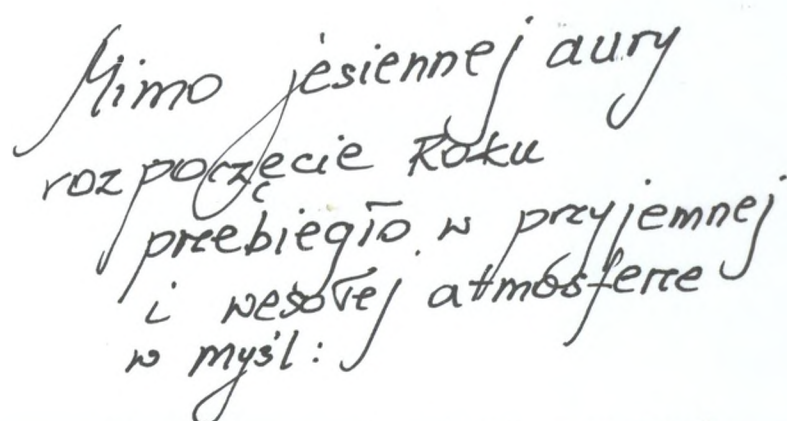 Mimo jesiennej aury
rozpoczęcie Roku
przebiegło w przyjemnej
i wesołej atmosferze
w myśl: